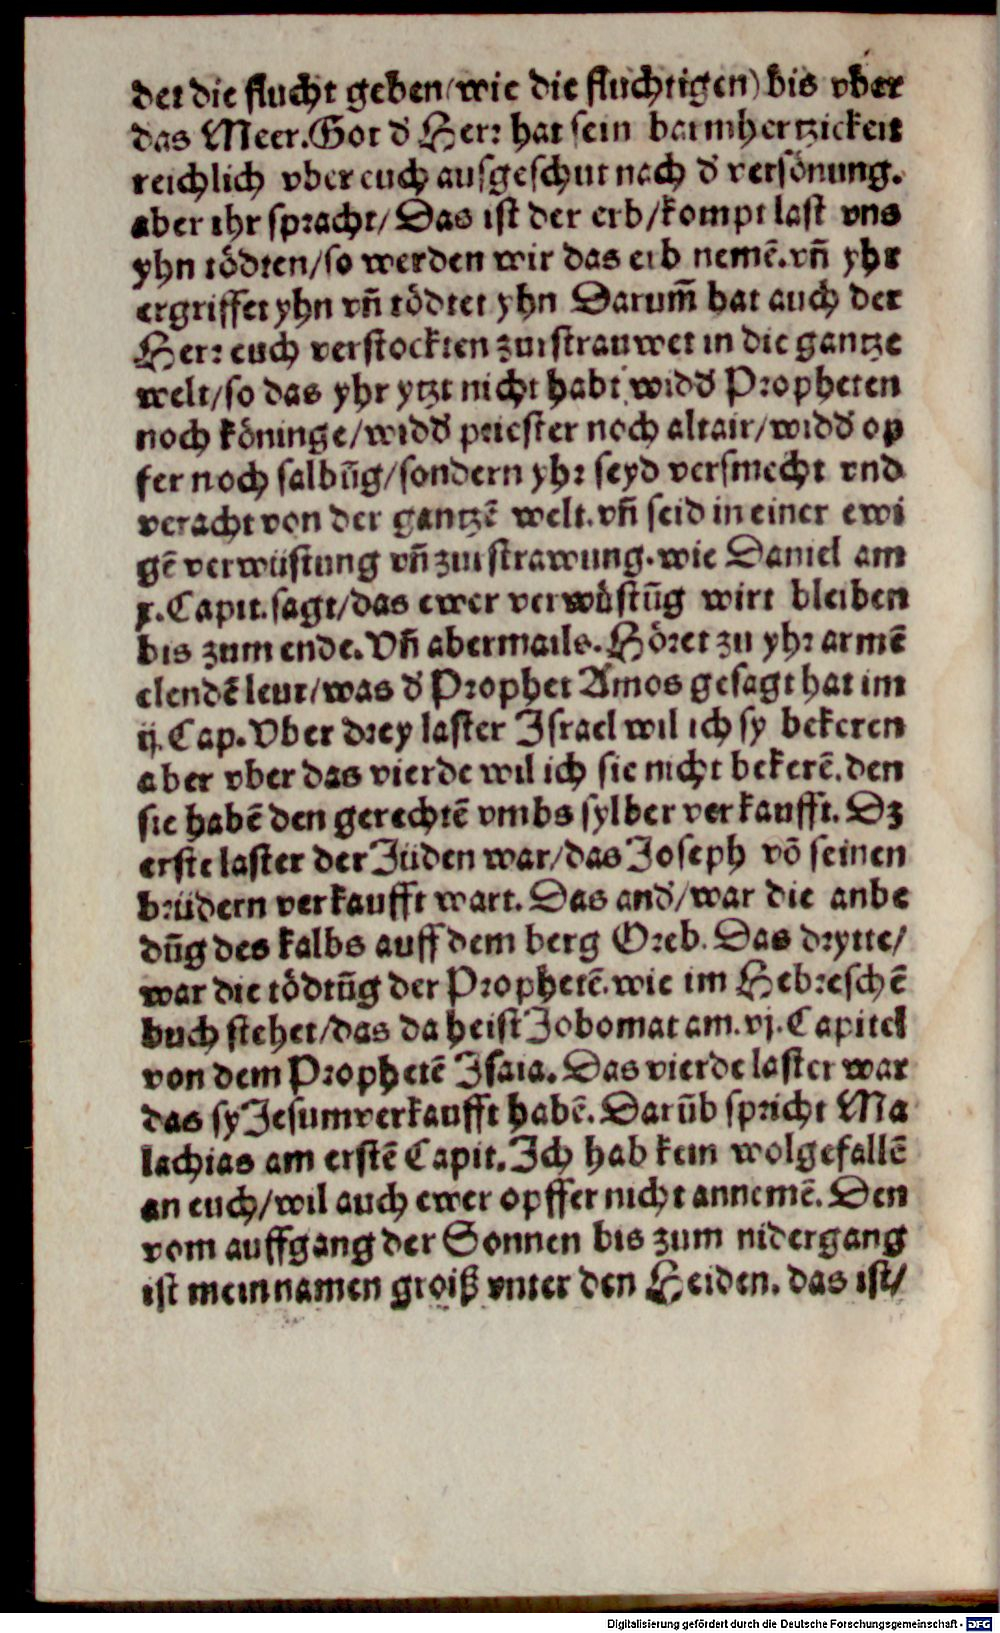 det die flucht geben (wie die fluchtigen) bis vber
das Meer. Got d̕ Herr hat sein barmhertzickeit
reichlich vber euch ausgeschut nach d̕ versönung.
aber ihr spracht/ Das ist der erb/kompt last vns
yhn tödten/so werden wir das erb nemē. vñ yhr
ergriffet yhn vñ tödtet yhn Darum̄ hat auch der
Herr euch verstockten zurstrauwet in die gantze
welt/so das yhr ytzt nicht habt widd̕ Propheten
noch köninge/widd̕ priester noch altair/widd̕ op
fer noch salbūg/sondern yhr seyd versmecht vnd
veracht von der gantzē welt. vñ seid in einer ewi
gē verwüstung vñ zurstrawung. wie Daniel am
x. Capit. sagt/das ewer verwüstūg wirt bleiben
bis zum ende. Vñ abermails. Höret zu yhr armē
elendē leut/was d̕ Prophet Amos gesagt hat im
ij. Cap. Vber drey laster Israel wil ich sy bekeren
aber vber das vierde wil ich sie nicht bekerē. den
sie habē den gerechtē vmbs sylber verkaufft. Dz
erste laster der Jüden war/das Joseph vō seinen
brüdern verkaufft wart. Das and̕/war die anbe
dūg des kalbs auff dem berg Oreb. Das drytte/
war die tödtūg der Prophetē. wie im Hebreschē
buch stehet/das da heist Jobomat am. vj. Capitel
von dem Prophetē Isaia. Das vierde laster war
das sy Jesum verkaufft habē. Darūb spricht Ma
lachias am erstē Capit. Ich hab kein wolgefallē
an euch/wil auch ewer opffer nicht annemē. Den
vom auffgang der Sonnen bis zum nidergang
ist mein namen groiß vnter den Heiden. das ist/
Digitalisierung gefördert durch die Deutsche Forschungsgemeinschaft - DFG